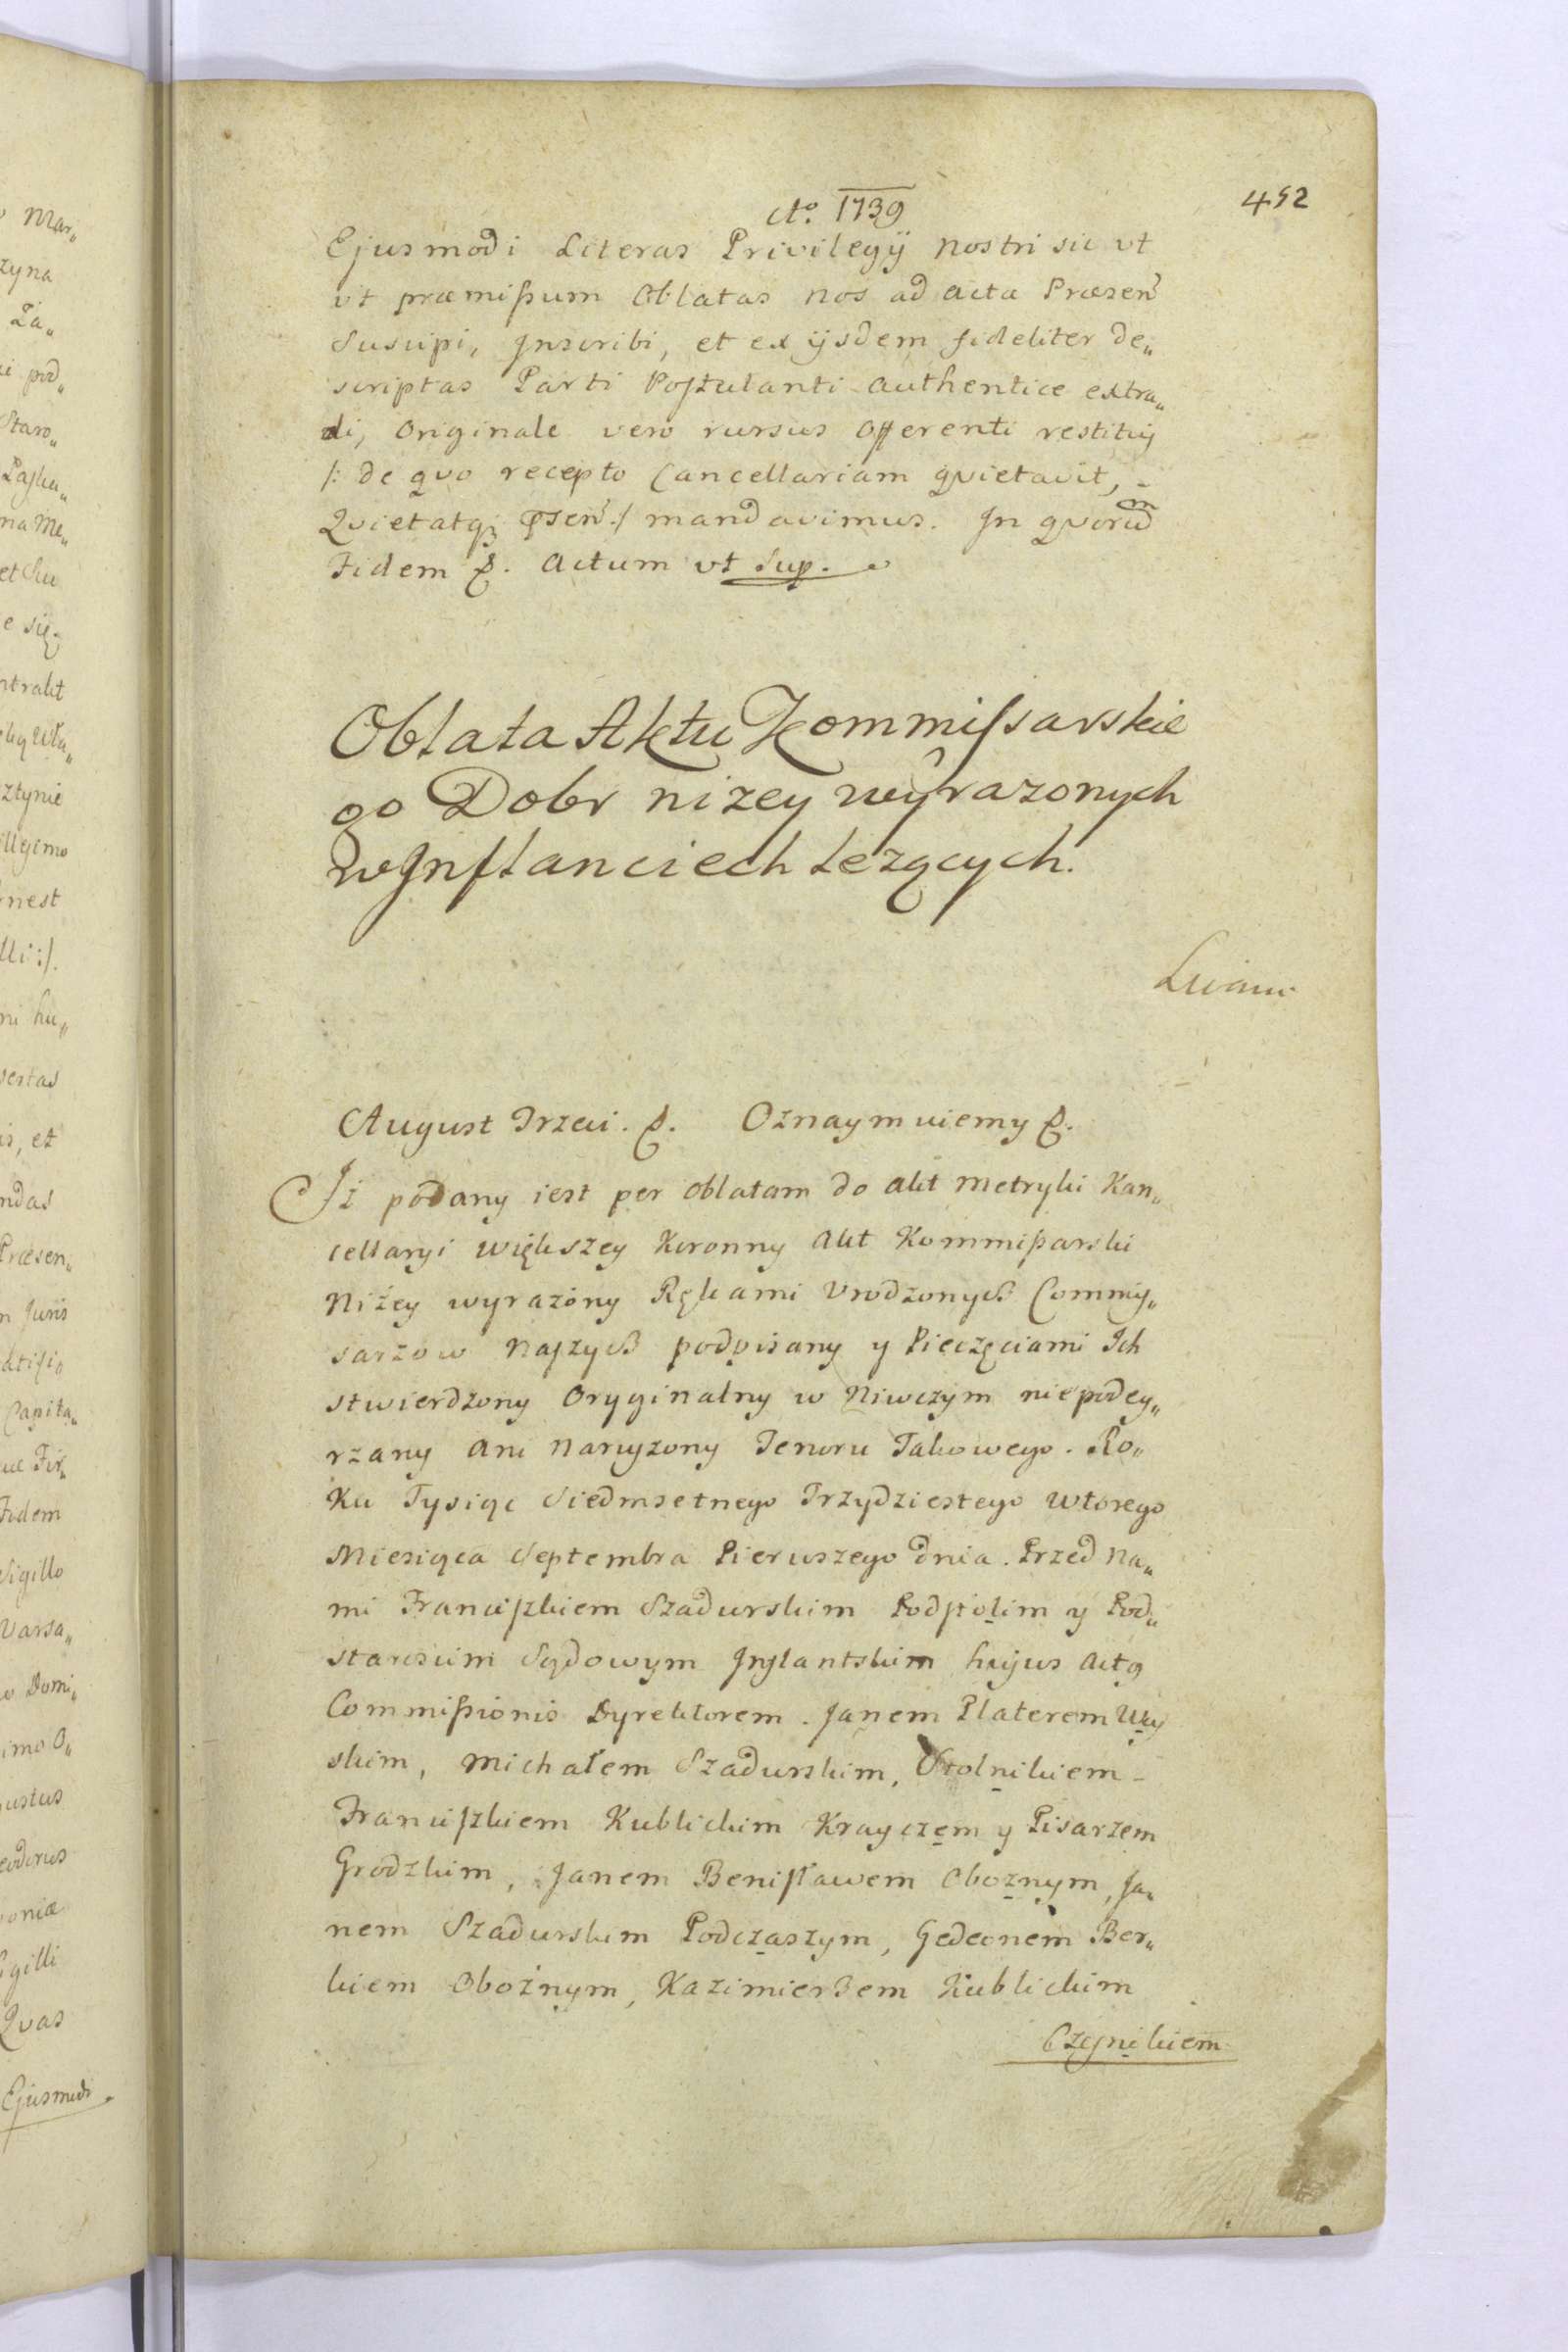 Ao. 1739
452
Ejusmodi Literas Privilegÿ nostri sic vt
vt præmißum Oblatas nos ad acta Præsen̄
Suscipi, Inscribi, et ex ijsdem fideliter de„
scriptas Parti Postulanti authentice extra„
di, Originale vero rursus Offerenti restitűj
/: de qvo recepto Cancellariam qvietavit, -
Qvietatqȝ Psen̄ ./ mandavimus. In qvorum
Fidem &. Actum vt Sup.
Oblata Aktu Kommissarskie
go Dobr nizey wyrazonych
w Inflanciech lezących.
August Trzeci. &. Oznaymuiemy &.
Iż podany iest per oblatam do akt metryki Kan„
cellaryi większey Koronny Akt Kommißarski
Niżey wyrażony Rękami Vrodzonych Commiy„
sarzow naszych podpisany y Pieczęciami Ich
stwierdzony Oryginalny w Niwczym niepodey„
rzany Ani naruszony Tenoru Takowego. Ro„
ku Tysiąc Siedmsetnego Trzydziestego wtorego
Miesiąca Septembra Pierwszego dnia. Przed na„
mi Franciszkiem Szadurskim Podstolim y Pod„
starościm Sądowym Inflantskim hujus actq
Commißionis Dyrektorem. Janem Platerem Woy
skim, Michałem Szadurskim, Stolnikiem -
Franciszkiem Kublickim Krayczem y Pisarzem
Grodzkim, Janem Benisławem Oboznym, Ja„
nem Szadurskim Podczaszym, Gedeonem Ber„
kiem Oboźnym, Kazimierzem Kublickim
Czesnikiem